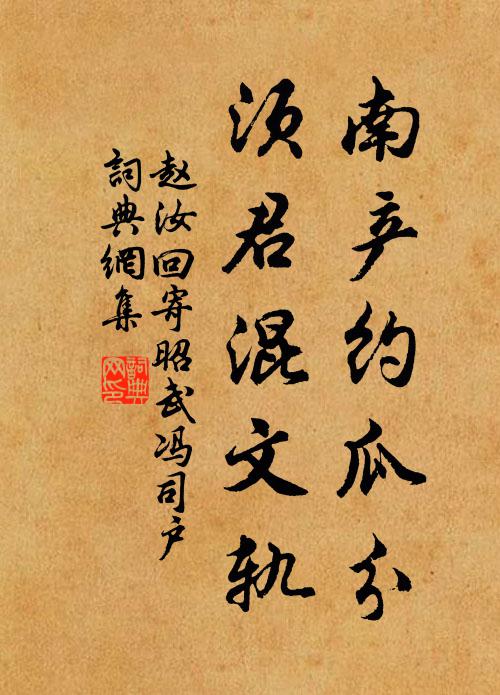 南产约瓜分
须君混文轨
赵汝回寄昭武冯司户
詞典網集
詞典網印